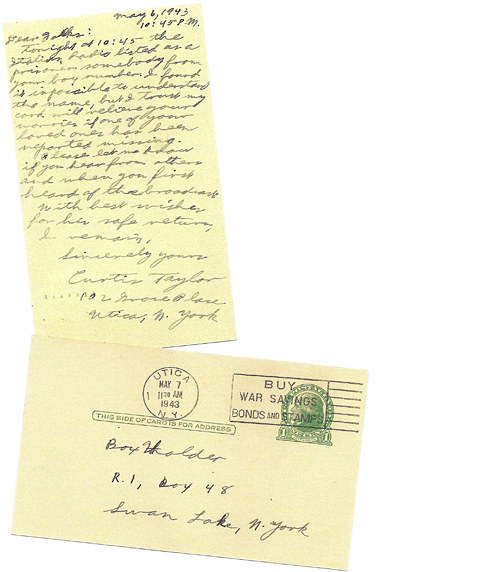 May 6, 1943
10:45 P.M.
Dear Folks:
Tonight at 10:45 the
Italian Radio listed as a
prisoner somebody from
your box number. I found
it impossible to understand
the name, but I trust my
card will relieve your
worries if one of your
loved ones has been
reported missing.
Please let me know
if you hear from others
and when you first
heard of the broadcast
With best wishes
for his safe return,
I remain,
Sincerely yours
Curtis Taylor
Place
Utica, N. York
UTICA
MAY 7
11 30 AM
1943
N.Y.
1
BUY
WAR SAVINGS
BONDS AND STAMPS
THIS SIDE OF CARD IS FOR ADDRESS
Box Holder
R.1, Box 48
Swan Lake, N. York